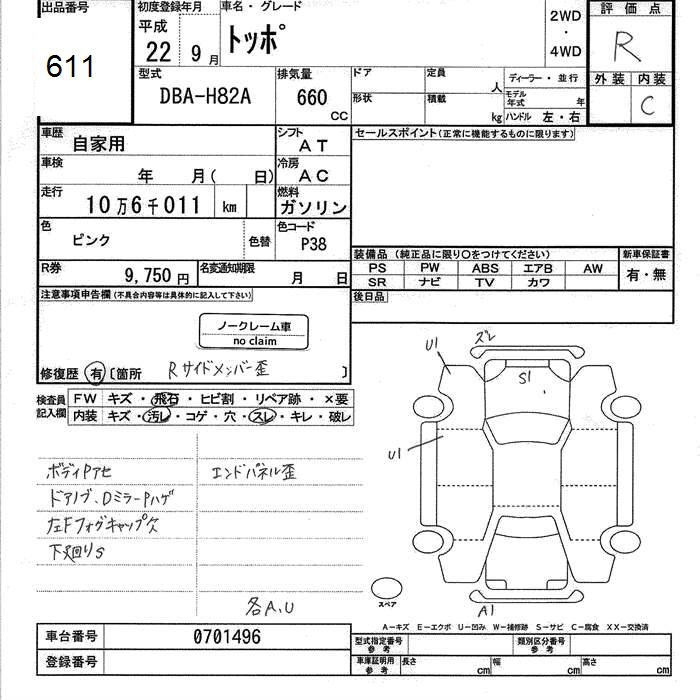 出品番号
611
初度登録年月
平成
22 9月
車名・グレード
トッポ
2WD
・
4WD
評価点
R
外装 内装
C
型式
DBA-H82A
排気量
660
CC
ドア
定員
人
形状
積載
kg
ディーラー・並行
モデル年式 年
ハンドル 左・右
車歴
自家用
シフト
AT
車検
年 月( 日)
冷房
AC
走行
10万6千011 km
燃料
ガソリン
色
ピンク
色替
色コード
P38
R券
9,750円
名変通知期限
月 日
セールスポイント(正常に機能するものに限ります)
装備品(純正品に限り○をつけてください)
PS PW ABS エアB AW
SR ナビ TV カワ
新車保証書
有・無
後日品
注意事項申告欄(不具合内容等は具体的に記入して下さい)
ノークレーム車
no claim
修復歴 有 〔箇所 Rサイドメンバー歪 〕
検査員
記入欄
FW キズ・飛石・ヒビ割・リペア跡・×要
内装 キズ・汚レ・コゲ・穴・スレ・キレ・破レ
ボディPアセ
エンドパネル歪
ドアノブ、DミラーPハゲ
左Fフォグキャップ欠
下廻りS
各A,U
U1
ズレ
S1
U1
A1
スペア
A−キズ E−エクボ U−凹み W−補修跡 S−サビ C−腐食 XX−交換済
車台番号
0701496
登録番号
型式指定番号
参考
類別区分番号
参考
車庫証明用
参考
長さ cm
幅 cm
高さ cm